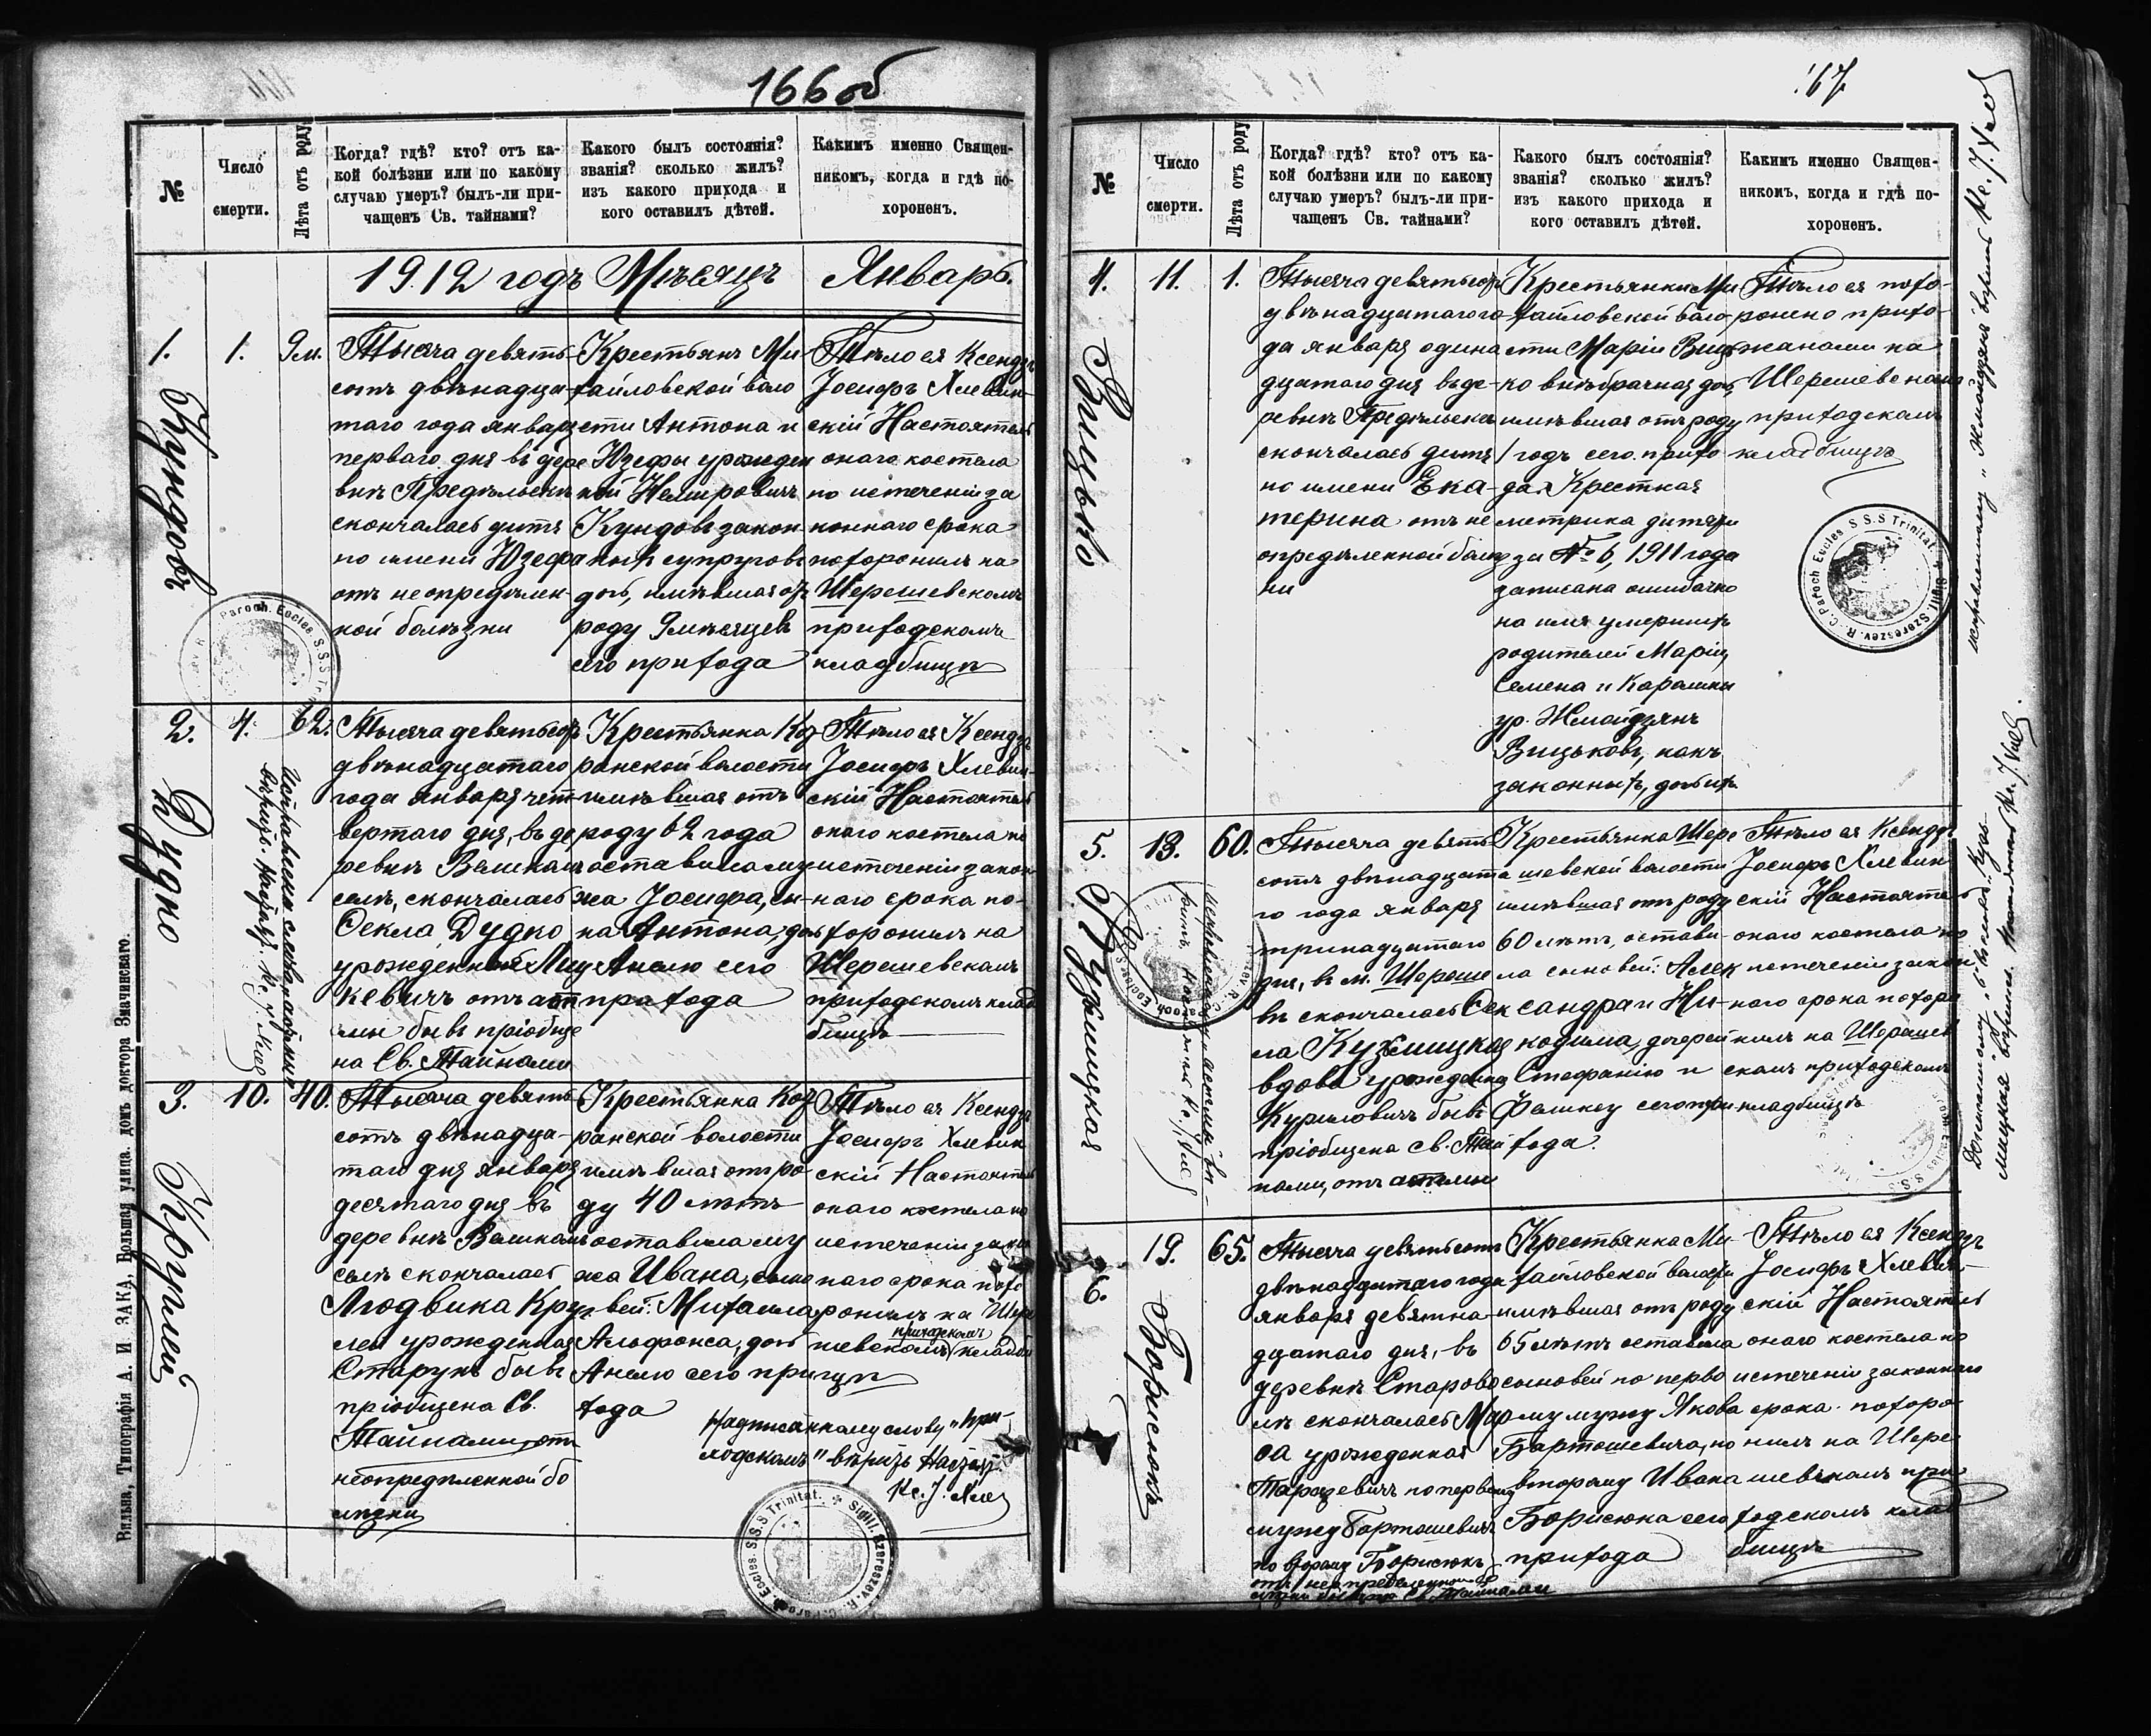 166 об
№
Число
смерти.
Лѣта отъ роду
Когда? гдѣ? кто? отъ ка-
кой болѣзни или по какому
случаю умеръ? былъ-ли при-
чащенъ Св. тайнами?
Какого былъ состоянія?
званія? сколько жилъ?
изъ какого прихода и
кого оставилъ дѣтей.
Какимъ именно Священ-
никомъ, когда и гдѣ по-
хороненъ.
1912 годъ Мѣсяцъ Январь.
1.
Кундовъ
1.
9 м.
Тысяча девять-
сотъ двѣнадца-
таго года января
перваго дня въ дере
внѣ Предѣльскъ
скончалась дитя
по имени Юзефа
отъ неопредѣлен-
ной болѣзни
Крестьянъ Ми
хайловской воло
сти Антона и
Юзефы урожден
ной Немировичъ
Кундовъ закон
ныхъ супруговъ
дочь, имѣвшая отъ
роду 9 мѣсяцевъ
сего прихода
Тѣло ея Ксендзъ
Іосифъ Хлевин-
скій Настоятель
онаго костела
по истеченіи за
коннаго срока
похоронилъ на
Шерешевскомъ
приходскомъ
кладбищѣ
2.
Дудко
4.
62.
Тысяча девятьсотъ
двѣнадцатаго
года января чет-
вертаго дня, въ де
ревнѣ Великомъ
селѣ, скончалась
Текла Дудко
урожденная Миц
кевичъ отъ аст
мы бывъ пріобще
на Св. Тайнами
Крестьянка Коз
ранской волости
имѣвшая отъ
роду 62 года
оставила му
жа Іосифа, сы-
на Антона, дочь
Анелю сего
прихода
Тѣло ея Ксендзъ
Іосифъ Хлевин-
скій Настоятель
онаго костела по
истеченіи закон
наго срока по-
хоронилъ на
Шерешевскомъ
приходскомъ клад
бищѣ
3.
Круглей
10.
40.
Тысяча девять-
сотъ двѣнадца-
таго дня января
десятаго дня въ
деревнѣ Великомъ
селѣ скончалась
Людвика Круг
лей урожденная
Старунъ бывъ
пріобщена Св.
Тайнами, отъ
неопредѣленной бо
лѣзни
Крестьянка Коз
ранской волости
имѣвшая отъ ро
ду 40 лѣтъ
оставила му
жа Ивана, сыно
вей: Михаила
Альфонса, дочь
Анелю сего при
хода
Тѣло ея Ксендзъ
Іосифъ Хлевин
скій Настоятель
онаго костела по
истеченіи закон
наго срока похо
ронилъ на Шере
шевскомъ приходскомъ кладби
щѣ
Надписанному слову „при-
ходскомъ" вѣрить Настоят.
Кс. І. Хлев
Вильна, Типографія А. И ЗАКА, Большая улица. домъ доктора Значинскаго.
167
№
Число
смерти.
Лѣта отъ роду
Когда? гдѣ? кто? отъ ка-
кой болѣзни или по какому
случаю умеръ? былъ-ли при-
чащенъ Св. тайнами?
Какого былъ состоянія?
званія? сколько жилъ?
изъ какого прихода и
кого оставилъ дѣтей.
Какимъ именно Священ-
никомъ, когда и гдѣ по-
хороненъ.
4.
Вицько
11.
1.
Тысяча девятьсотъ
двѣнадцатаго го-
да января одина
дцатаго дня въ де-
ревнѣ Предѣльскъ
скончалась дитя
по имени Ека-
терина отъ не
опредѣленной болѣз
ни
Крестьянки Ми
хайловской воло-
сти Маріи Виць
ко внѣбрачная дочь,
имѣвшая отъ роду
1 годъ сего прихо
да. Крестная
метрика дитяти
за № 6, 1911 года
записана ошибочно
на имя умершихъ
родителей Маріи,
Семена и Карашки
ур. Жмайдзянъ
Вицьковъ, какъ
законныхъ, дочь ихъ
Тѣло ея похо-
ронено прихо-
жанами на
Шерешевскомъ
приходскомъ
кладбищѣ
5.
Кузьмицкая
13.
60.
Тысяча девять-
сотъ двѣнадцата
го года января
тринадцатаго
дня, въ м. Шереше
вѣ скончалась Фек
ла Кузьмицкая
вдова урожденна
Куриловичъ бывъ
пріобщена Св. Тай
нами, отъ астмы
Крестьянка Шере
шевской волости
имѣвшая отъ роду
60 лѣтъ, остави-
ла сыновей: Алек
сандра и Ни-
кодима, дочерей
Стефанію и
Фелицу сего при
хода.
Тѣло ея Ксендзъ
Іосифъ Хлевин
скій Настоятель
онаго костела по
истеченіи закон
наго срока похоро
нилъ на Шерешев
скомъ приходскомъ
кладбищѣ
6.
Борисюкъ
19.
65.
Тысяча девятьсотъ
двѣнадцатаго года
января девятна-
дцатаго дня, въ
деревнѣ Старово
лѣ скончалась Мар
ѳа урожденная
Тарасевичъ по первому
мужу Бартошевичъ
по второму Борисюкъ
Крестьянка Ми-
хайловской волости
имѣвшая отъ роду
65 лѣтъ оставила
сыновей по перво
му мужу Якова
Бартошевича, по
второму Ивана
Борисюка сего
прихода
Тѣло ея Ксендзъ
Іосифъ Хлевин-
скій Настоятель
онаго костела по
истеченіи законнаго
срока похоро
нилъ на Шере
шевскомъ при
ходскомъ клад
бищѣ